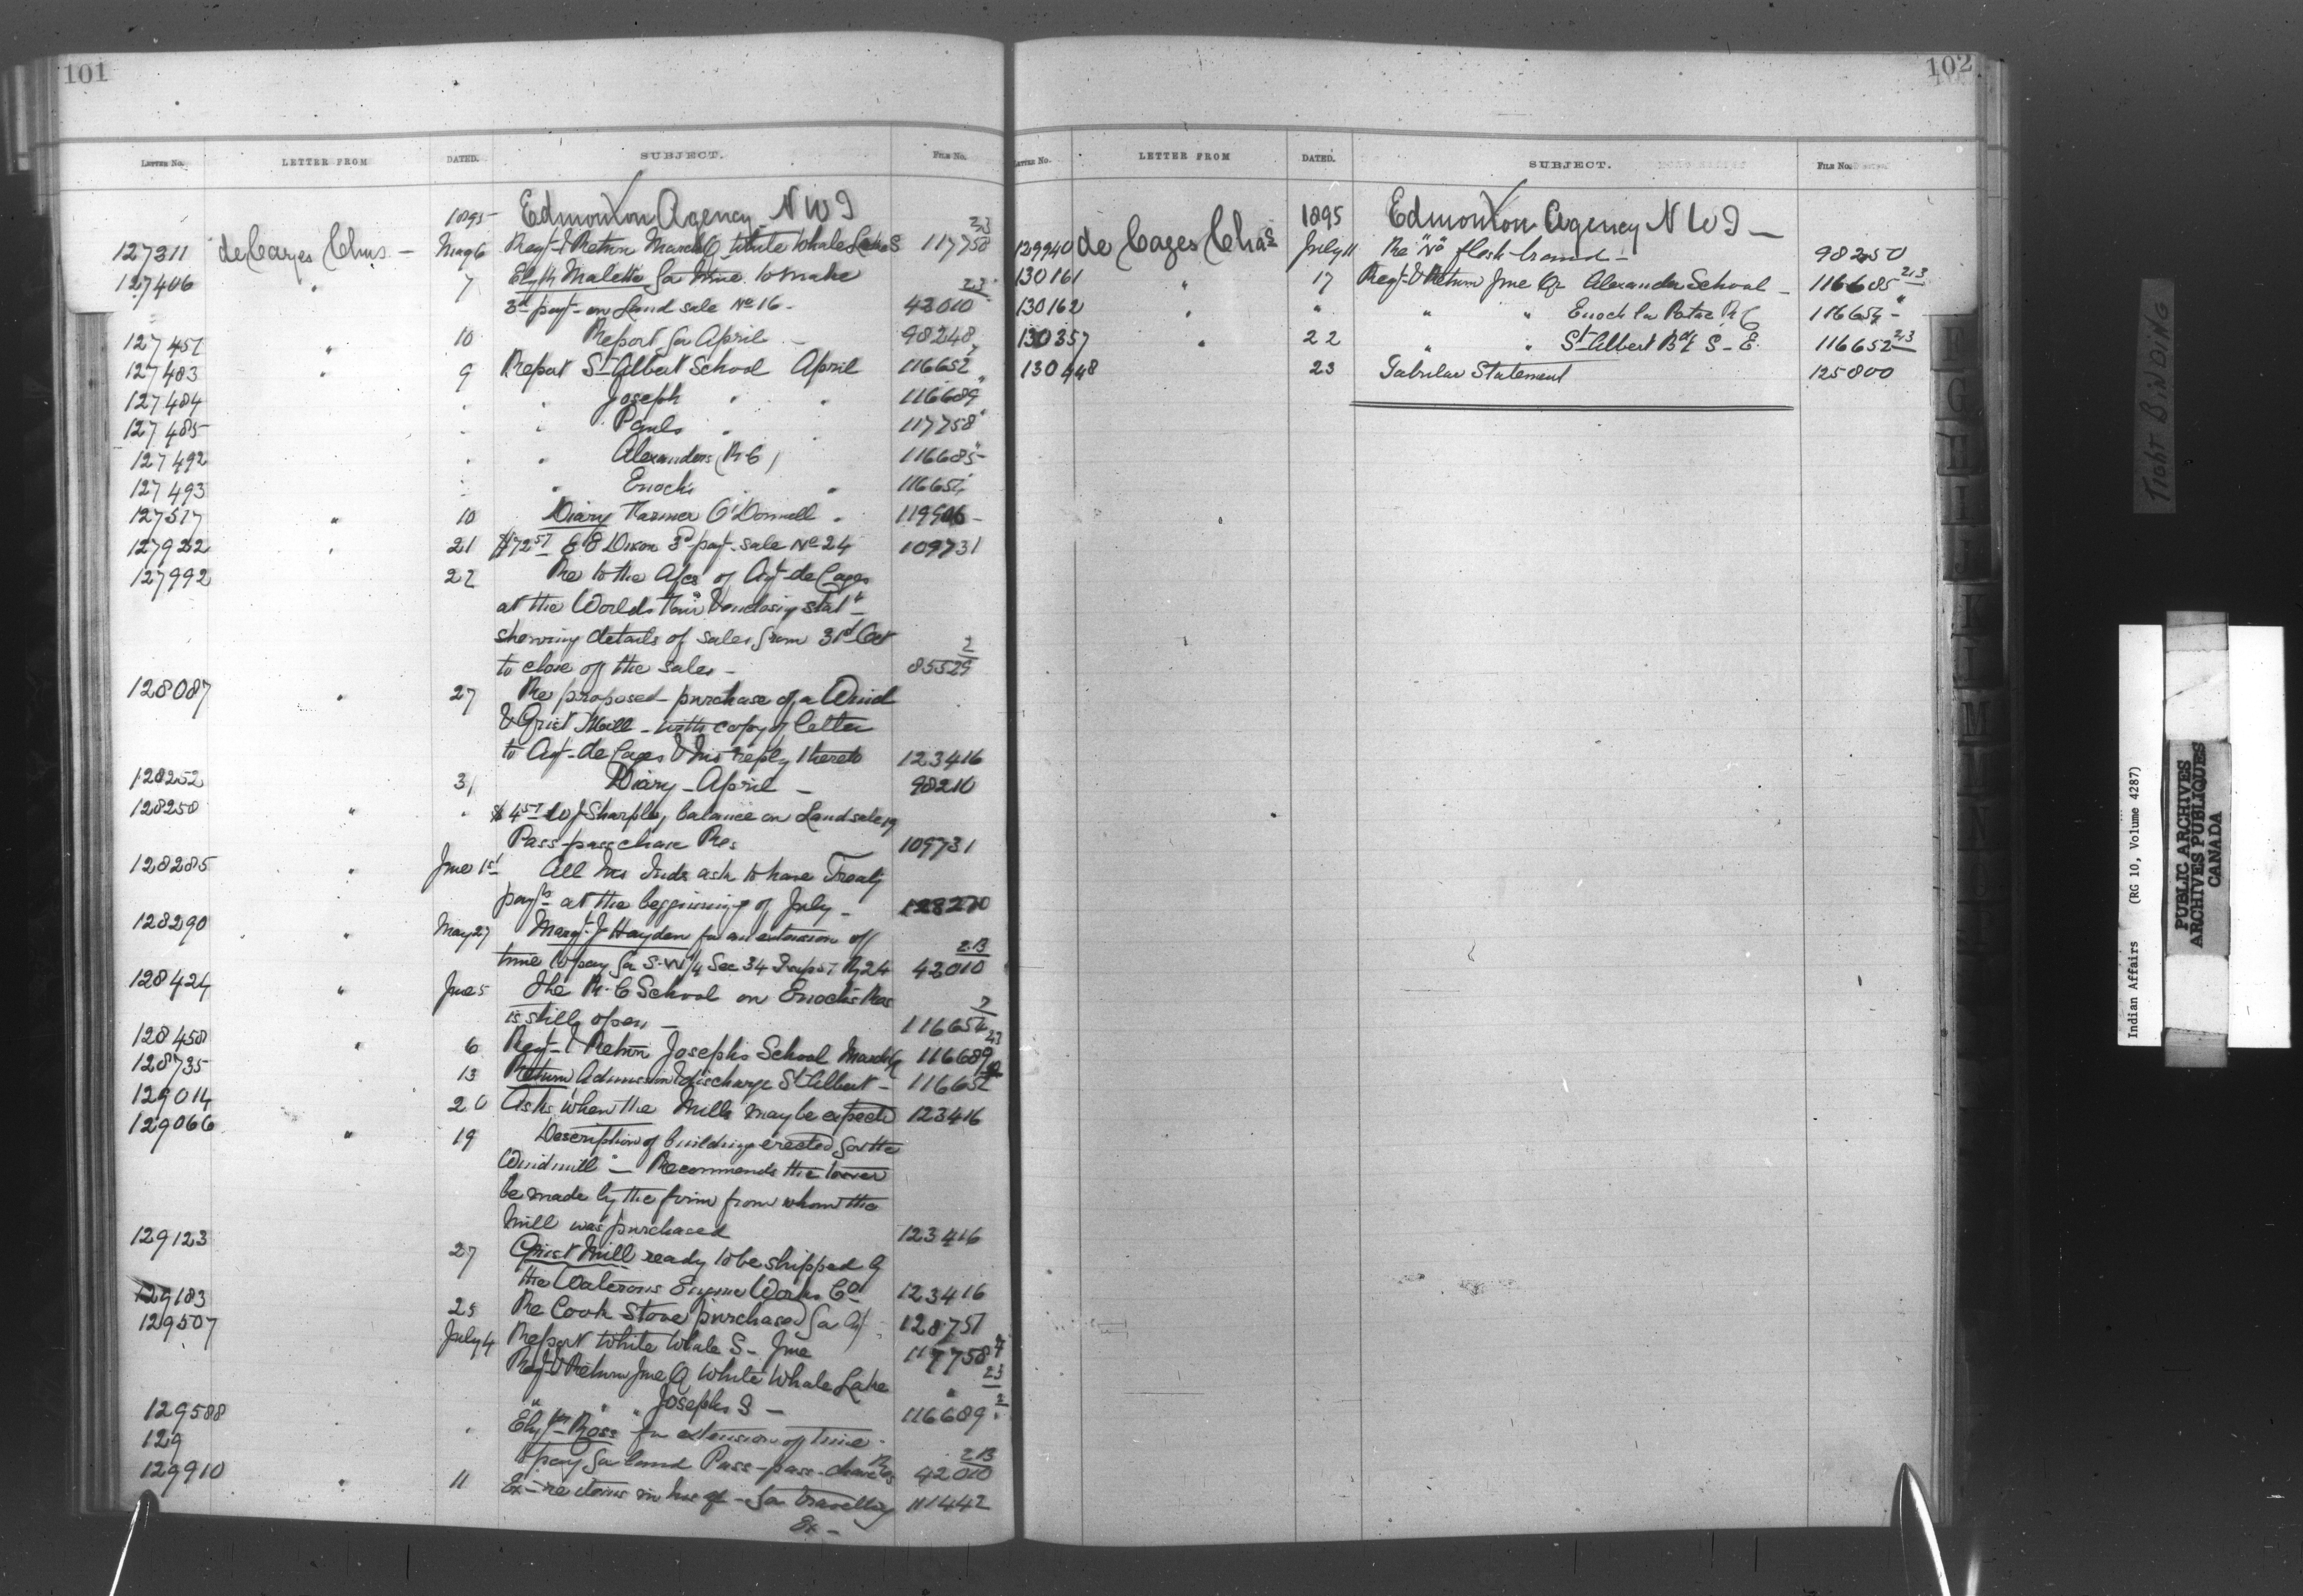 101
LETTER No. LETTER FROM DATED. SUBJECT. FILE No.
1895 Edmonton Agency N W T
127311 de Cazes Chas - May 6 Reqt & Return March Q White Whale Lake S 117758 2/3
127406 " 7 Elyth Malette for time to make
3rd payt on Land sale No 16 - 42010 23
127451 " 10 Report for April - 98248
127483 " 9 Report St Albert School April 116652
127484 " " Joseph " " 116689
127485 " " Pauls " " 117758
127492 " " Alexanders (R C) 116685
127493 " " Enochs " " 116654
127517 " 10 Diary Farmer O'Donnell " 119906
127922 " 21 3rd payt sale No 24 109731
127992 22 Re to the Afcs of Agt de Cazes
at the Worlds Fair & enclosing statt
showing details of sales from 31st Oct
to close of the sales - 85529 2
128087 " 27 Re proposed purchase of a Wind
& Grist Mill - with copy of letter
to Agt de Cazes & his reply thereto 123416
128252 31 Diary - April - 98210
128258 " " Sharples, balance on Land sale 19
Pass-passchase Res 109731
128285 " June 1st All his Inds ask to have Treaty
payts at the beginning of July - 128270
128290 " May 27 Margt J Hayden for an extension of
time to pay for S-W 1/4 Sec 34 Rg 24 42010 2.B
128424 " June 5 The R. C School on Enochs Res
is still open - 116654 2
128458 " 6 Reqt & Return Josephs School March Q 116689 23
128735 13 Return Admission & discharge St Albert - 116652
129014 20 Asks when the Mills may be expected 123416
129066 " 19 Description of building erected for the
Windmill - Recommends the tower
be made by the firm from whom the
Mill was purchased 123416
129123 27 Grist Mill ready to be shipped by
the Waterous Engine Works Co 123416
129183 25 Re Cook Stove purchased for Agt 128751
129507 July 4 Report White Whale S - June 117758
Reqt & Return June Q White Whale Lake " 23
" " " Josephs S - 116689 2
129588 " Elyth Ross for extension of time
129 to pay for land Pass-pass-chase Res 42010 2.B
129910 " 11 Ex - re items in his - for travelling 111442
Ex -
102
LETTER No. LETTER FROM DATED. SUBJECT. FILE No.
1895 Edmonton Agency N W T -
129940 de Cazes Chas July 11 Re "N" flesh brand - 98250
130161 " 17 Reqt & Return June Qr Alexander School - 116685 2/3
130162 " " " " Enoch la Potac R C 116654 - "
130357 " 22 " " St Albert Bdg S - E. 116652 2/3
130448 23 Tabular Statement 125800
F
G
H
I
J
K
L
M
N
TIGHT BINDING
Indian Affairs (RG 10, Volume 4287)
PUBLIC ARCHIVES
ARCHIVES PUBLIQUES
CANADA